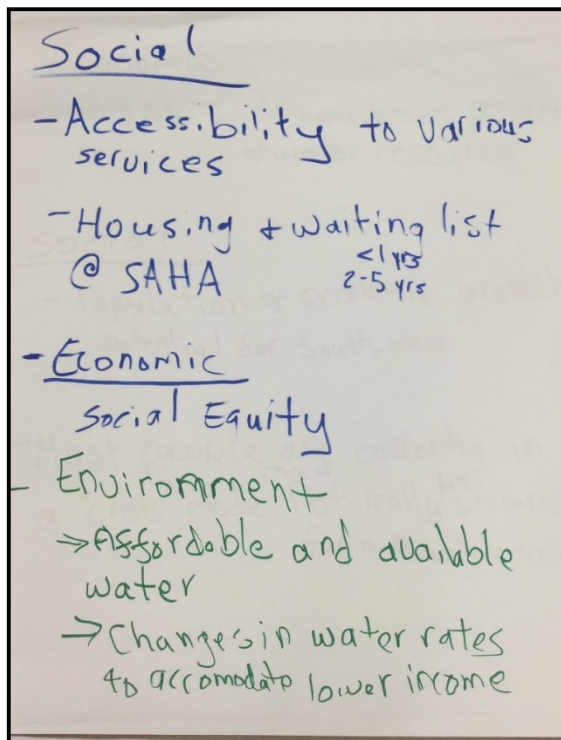 Social
- Accessibility to various
services
- Housing + waiting list
<1 yrs
@ SAHA 2-5 yrs
- Economic
Social Equity
- Enviromment
→ Affordable and available
water
→ Changes in water rates
to accomodate lower income